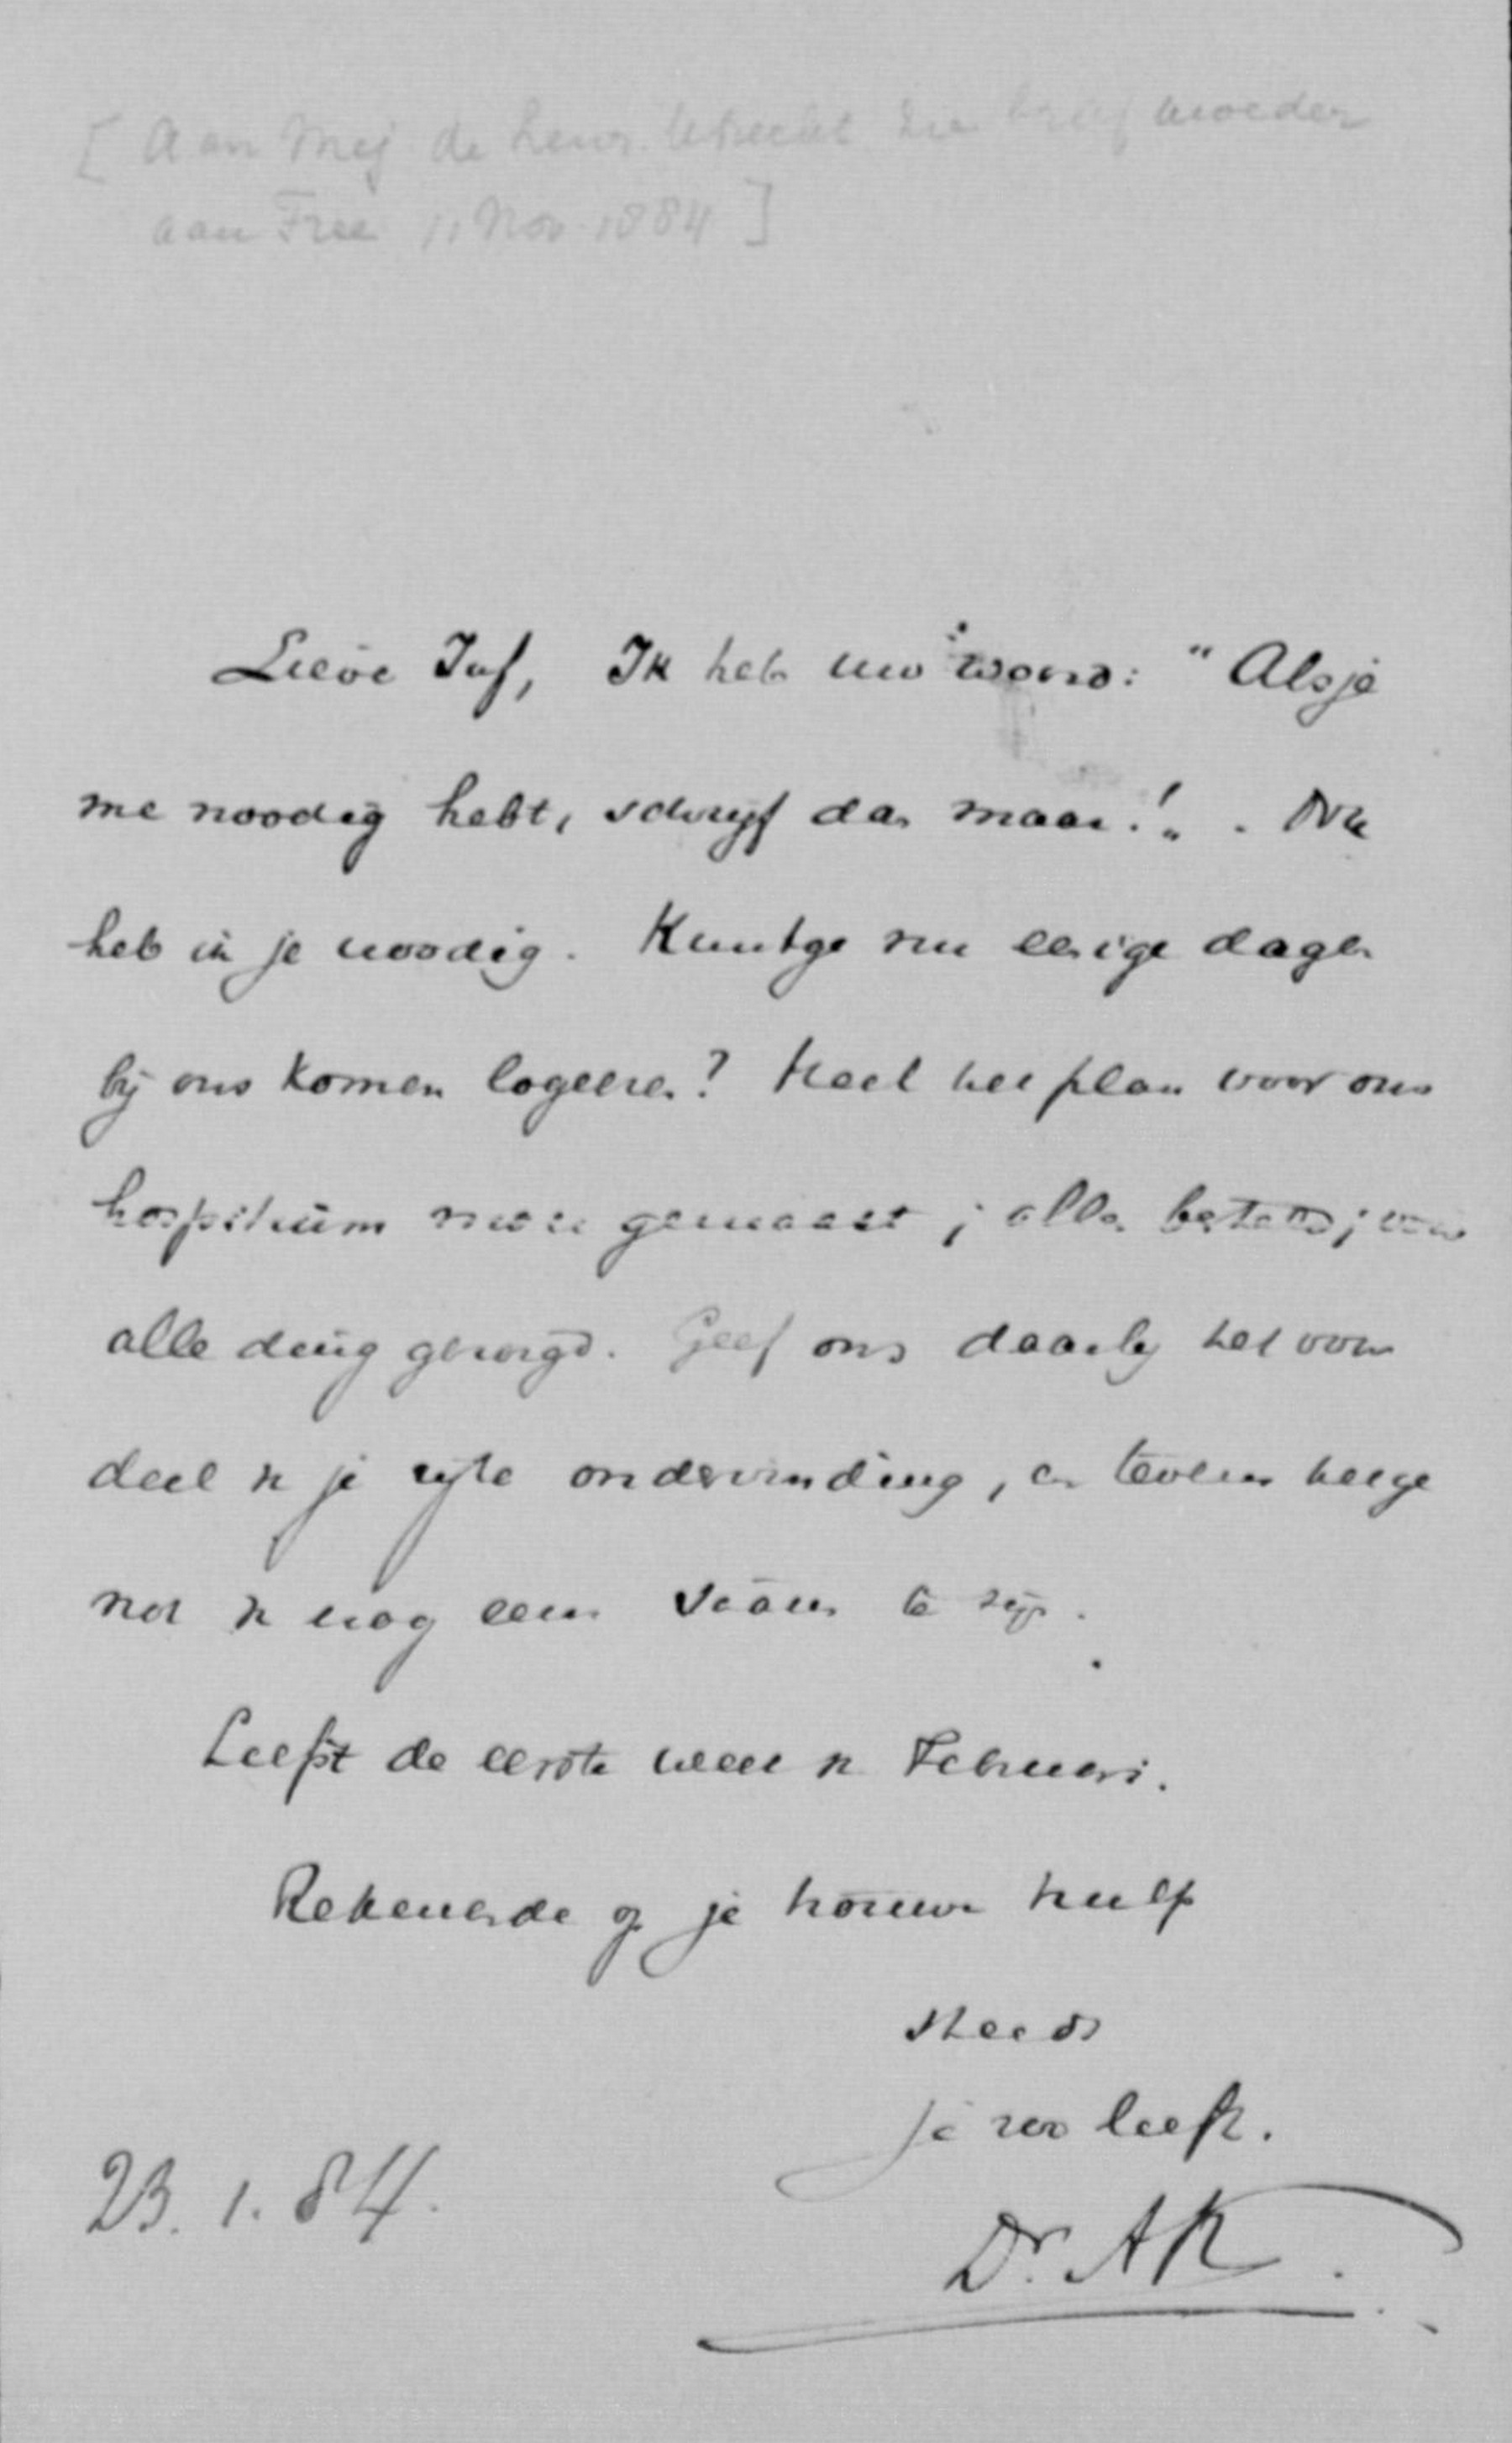 [Aan Mej de Leur. Utrecht zie brief moeder
aan Free 11 Nov. 1884]
Lieve Juf, Ik heb uw woord: "Als je
me noodig hebt, schrijf dan maar!„. Nu
heb ik je noodig. Kuntge nu eenige dagen
bij ons komen logeeren? Heel het plan voor ons
hospitium is gemaakt; alles betaald; voor
alle ding gezorgd. Geef ons daarbij het voor
deel v je rijke ondervinding, en tevens het ge
not v nog eens saam te zijn.
Liefst de eerste week v Februari.
Rekenende op je trouwe hulp
steeds
je zoo liefh.
Dr. AK.
23. 1. 84.